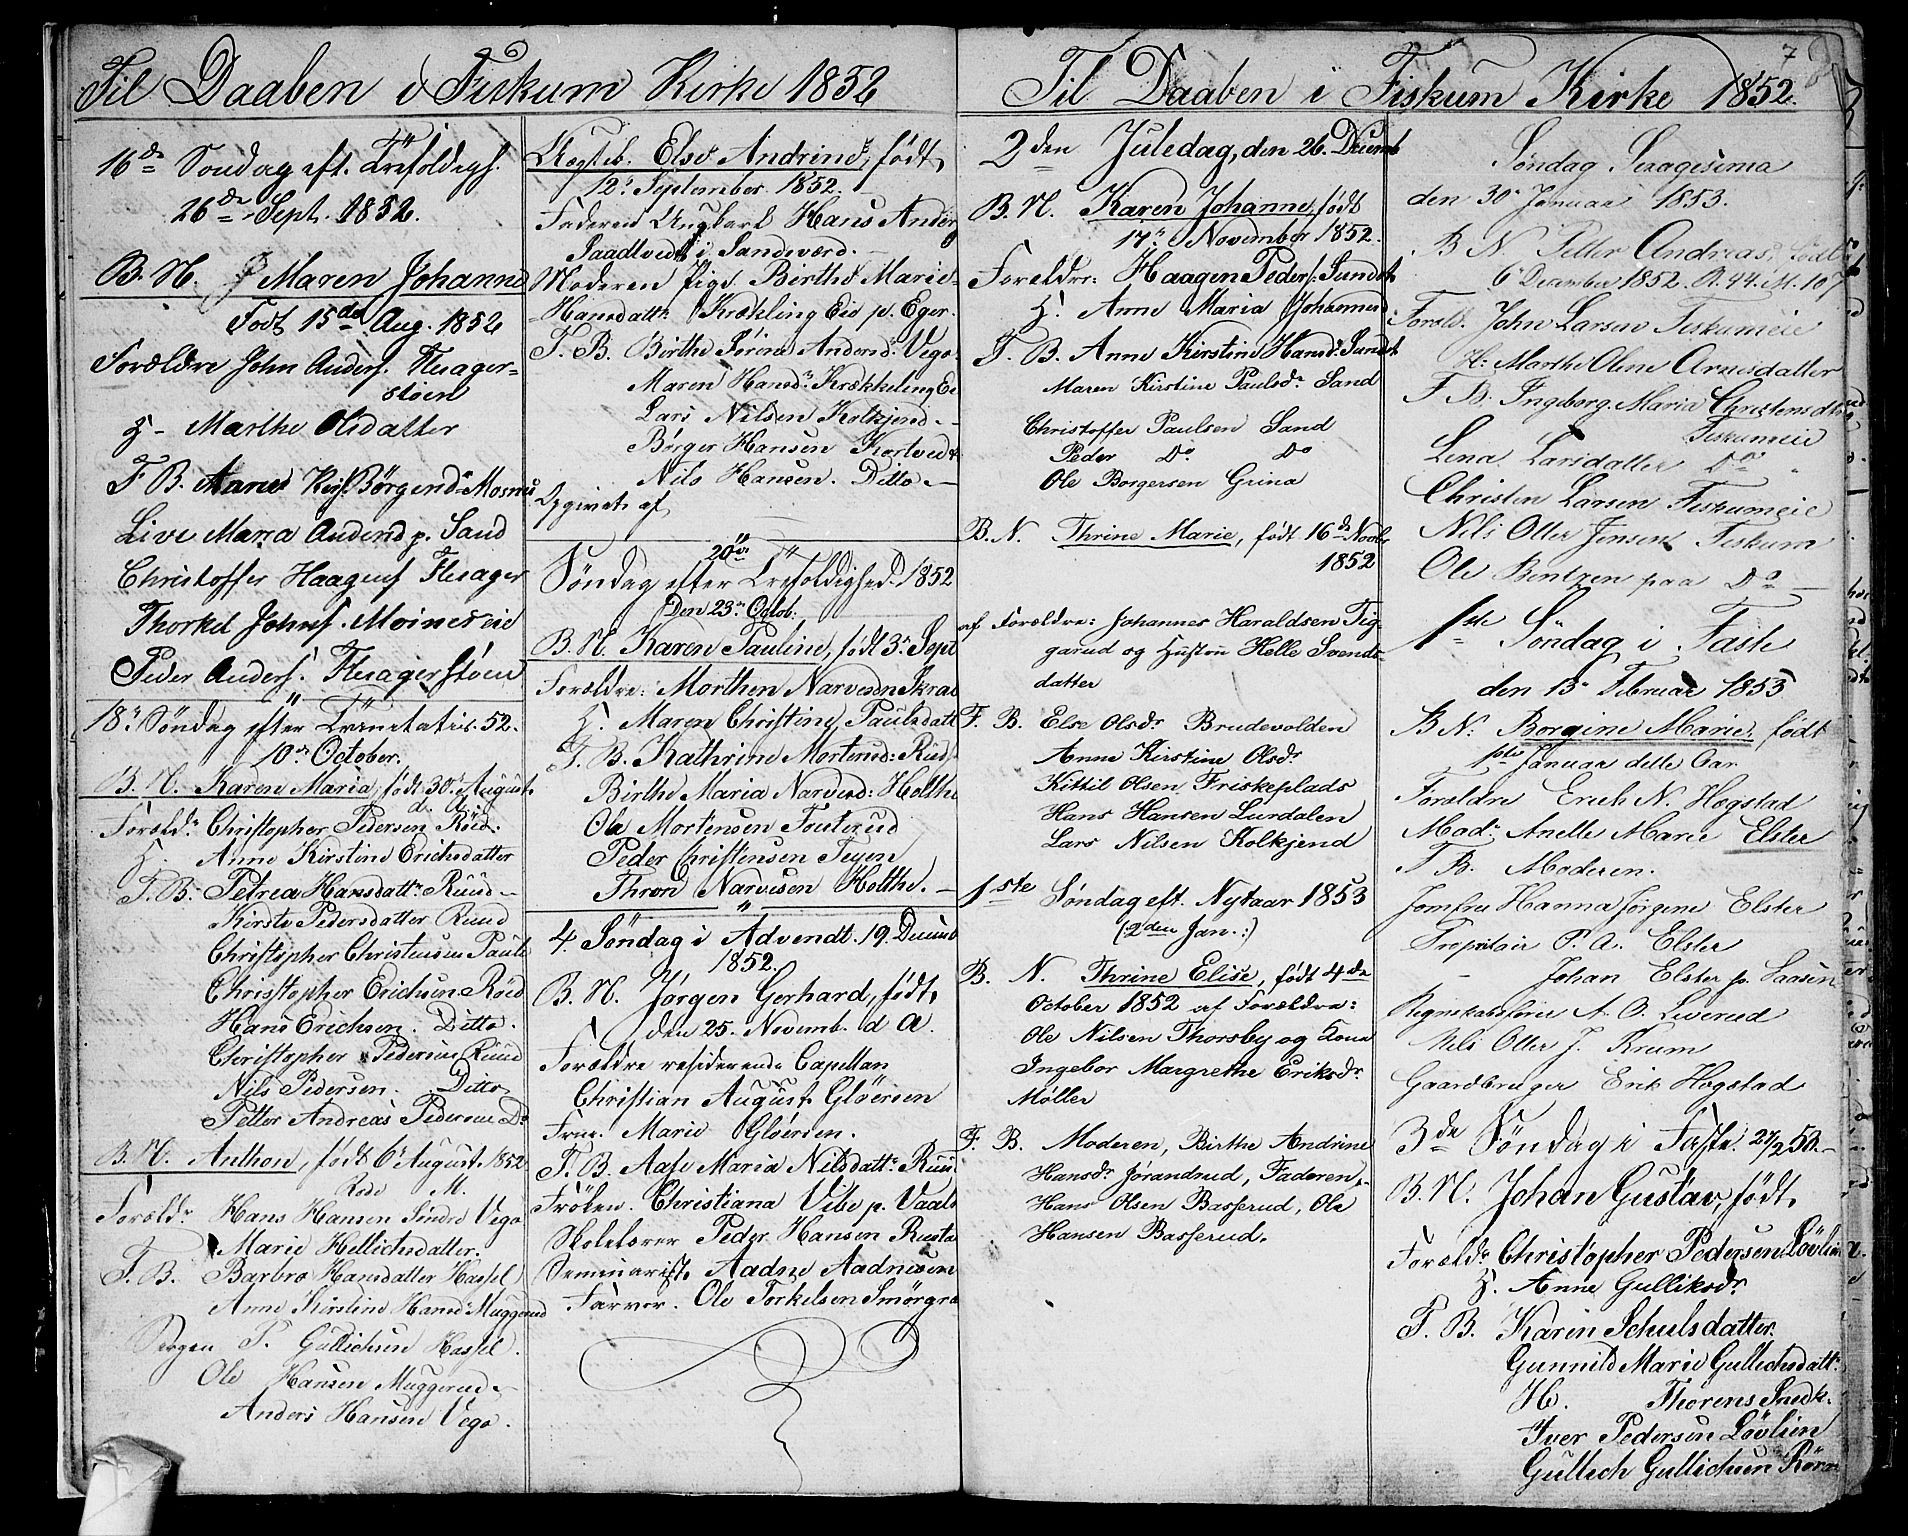 Til Daaben i Fiskum Kirke 1852
16de Søndag eft. Trefoldigh.
26de Sept. 1852.
B. N. Maren Johanne
Født 15de Aug. 1852
Forældre John Anders. Flesager-
støen
H. Marthe Olsdatter
F. B. Maren Kirst. Børgersd. Mosnes
Live Maria Andersd p. Sand
Christoffer Haagens Flesager
Thorkel Johns. Moineseie
Peder Anders. Flesagerstøen
18n Søndag efter Trinitatis. 52.
10de October.
B. N. Karen Maria, født 30t August
d. A.
Foræld. Christopher Pedersen Rüd.
H. Anne Kirstine Erichsdatter
F. B. Petrea Hansdattr Ruud
Kirste Pedersdatter Ruud
Christopher Christensen Paule
Christopher Erichsen Röed
Hans Erichsen. Ditto.
Christopher Pedersen Ruud
Nils Pedersen. Ditto
Petter Andreas Pedersen Do
B. N. Anthon, født 6t August 1852
Foræld. Hans Hansen Søndre Vego
Marie Hellichsdatter.
F. B. Barbro Hansdatter Hassel
Anne Kirstine Hansd. Muggerud
T. Gullichsen Hassel.
Ole Hansen Muggerud
Anders Hansen Vego.
Uægteb. Else Andrine, født
12t September 1852.
Faderen Ungkarl Hans Anders
Saadtvedt i Sandsværd.
Moderen Pige Birthe Marie
Hansdattr Krækling Eie p. Eger.
F. B. Birthe Sörine Andersd. Vego.
Maren Hansdr. Krækkeling Ei
Lars Nilsen Kolkjend
Børger Hansen Kortvedt
Nils Hansen. Ditto
Opgivet af
20de
Søndag efter Trefoldighed. 1852
Den 23n Octob.
B. N. Karen Pauline, født 3n Sept
Forældre: Morthen Narvesen Skral
H. Maren Christine Paulsdatt
F. B. Kathrine Mortensd: Rüd
Birthe Maria Narvesd: Holthe
Ole Mortensen Fosterud
Peder Christensen Teyen
Thron Narvesen Holthe.
4. Søndag i Advendt. 19. Decemb
1852.
B. N. Jørgen Gerhard, født
den 25. Novemb. d A.
Forældre residerende Capellan
Christian August Gløersen
Frue. Marie Gløersen.
F. B. Aase Maria Nilsdattr Ruu
Frøken. Christiana Vibe p. Vaale
Skolelærer Peder Hansen Rusta
Seminarist Aadne Aadnesen
Farver. Ole Torkelsen Smörgra
Til Daaben i Fiskum Kirke 1852.
7
2den Juledag, den 26. Decemb
B. N. Karen Johanne, født
17n November 1852.
Forældre: Haagen Peders. Sundet
H. Anne Maria Johannesd
F. B. Anne Kirstine Hansd. Sundet
Maren Kirstine Paulsdr Sand
Christoffer Paulsen Sand
Peder Do Do
Ole Borgersen Grina
B. N. Thrine Marie, født 16de Novbr
1852
af Forældre: Johannes Haraldsen Tig-
garud og Hustru Helle Svends-
datter
F. B. Else Olsdr Brudevolden
Anne Kirstine Olsdr
Kittil Olsen Friskeplads
Hans Hansen Lurdalen
Lars Nilsen Kolkjend
1ste Søndag eft. Nytaar 1853
(2den Jan.:)
B. N. Thrine Elise, født 4de
October 1852 af Forældre:
Ole Nilsen Thorsby og Kona
Ingebor Margrethe Eriksdr
Møller
F. B. Moderen, Birthe Andrine
Hansdr Jørandrud, Faderen,
Hans Olsen Basserud, Ole
Hansen Basserud.
Søndag Sexagesima
den 30n Januar 1853.
B N. Petter Andreas, Født
6n December 1852. A. 44. M. 107
Foræld. John Larsen Fiskumeie
H. Marthe Olene Arnesdatter
F B. Ingeborg Maria Christensdtr
Fiskumeie
Lena Larsdatter Do
Christen Larsen Fiskumeie
Nils Otter Jensen Fiskum
Ole Bentzen paa Do
1ste Søndag i Faste
den 13n Februar 1853
B N. Borgine Marie, født
1ste Januar dette Aar
Forældre Erich N. Hogstad
Mad. Anette Marie Elster
F B. Moderen.
Jomfru Hanna Jørgine Elster
Propritair P. A. Elster
Johan Elster p. Saasen
Regnskabsfører A. O. Liverud
Nils Otter J. Krum
Gaardbruger Erik Hogstad
3de Søndag i Faste 27/2 53.
B. N. Johan Gustav, født
Foræld. Christopher Pedersen Lövlien
H. Anne Gulliksdr
F. B. Karin Schulsdatter.
Gunnild Marie Gullichsdattr
H. Thorens Snedk.
Iver Pedersen Lövlien
Gullich Gullichsen Röra